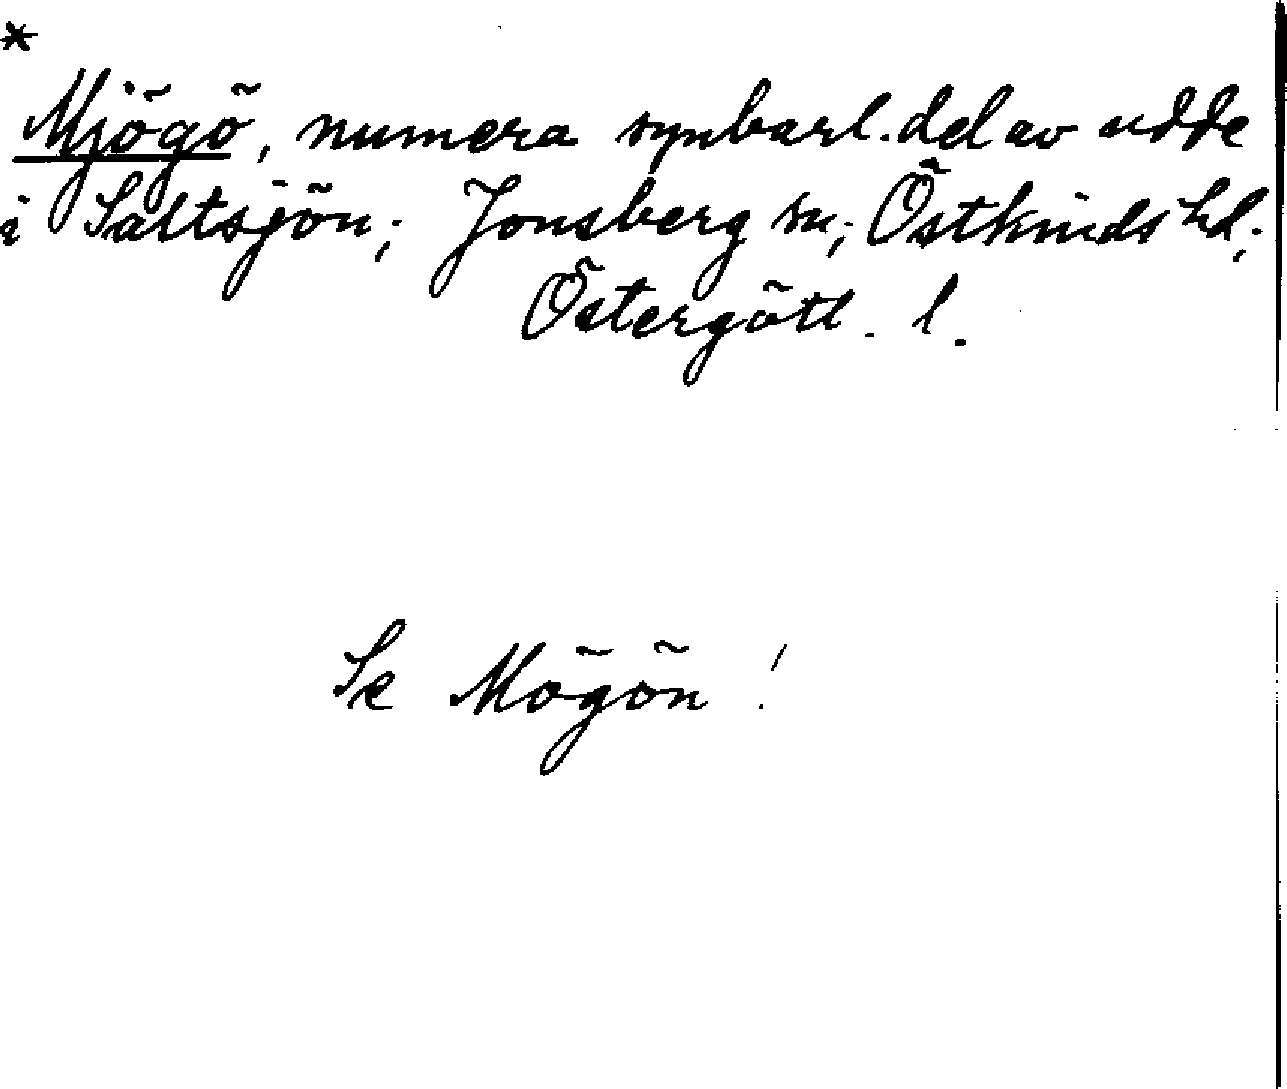 *
Mjögö, numera synbarl. del av udde
i Saltsjön; Jonsberg sn; Östkinds hd;
Östergötl. l.
Se Mögön!